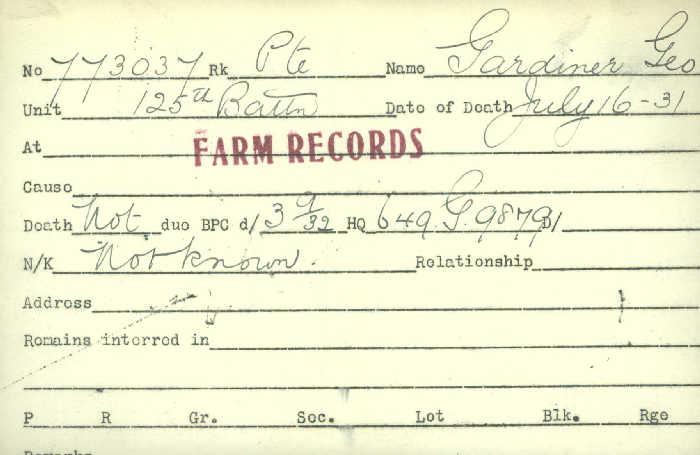 No 773037 Rk Pte Name Gardiner Geo
Unit 125th Battn Date of Death July 16-31
At FARM RECORDS
Cause
Death Not due BPC d/ 3 9/32 HQ 649 G. 9879 D1
N/K Not known. Relationship
Address
Remains interred in
P R Gr. Sec. Lot Blk. Rge
Remarks